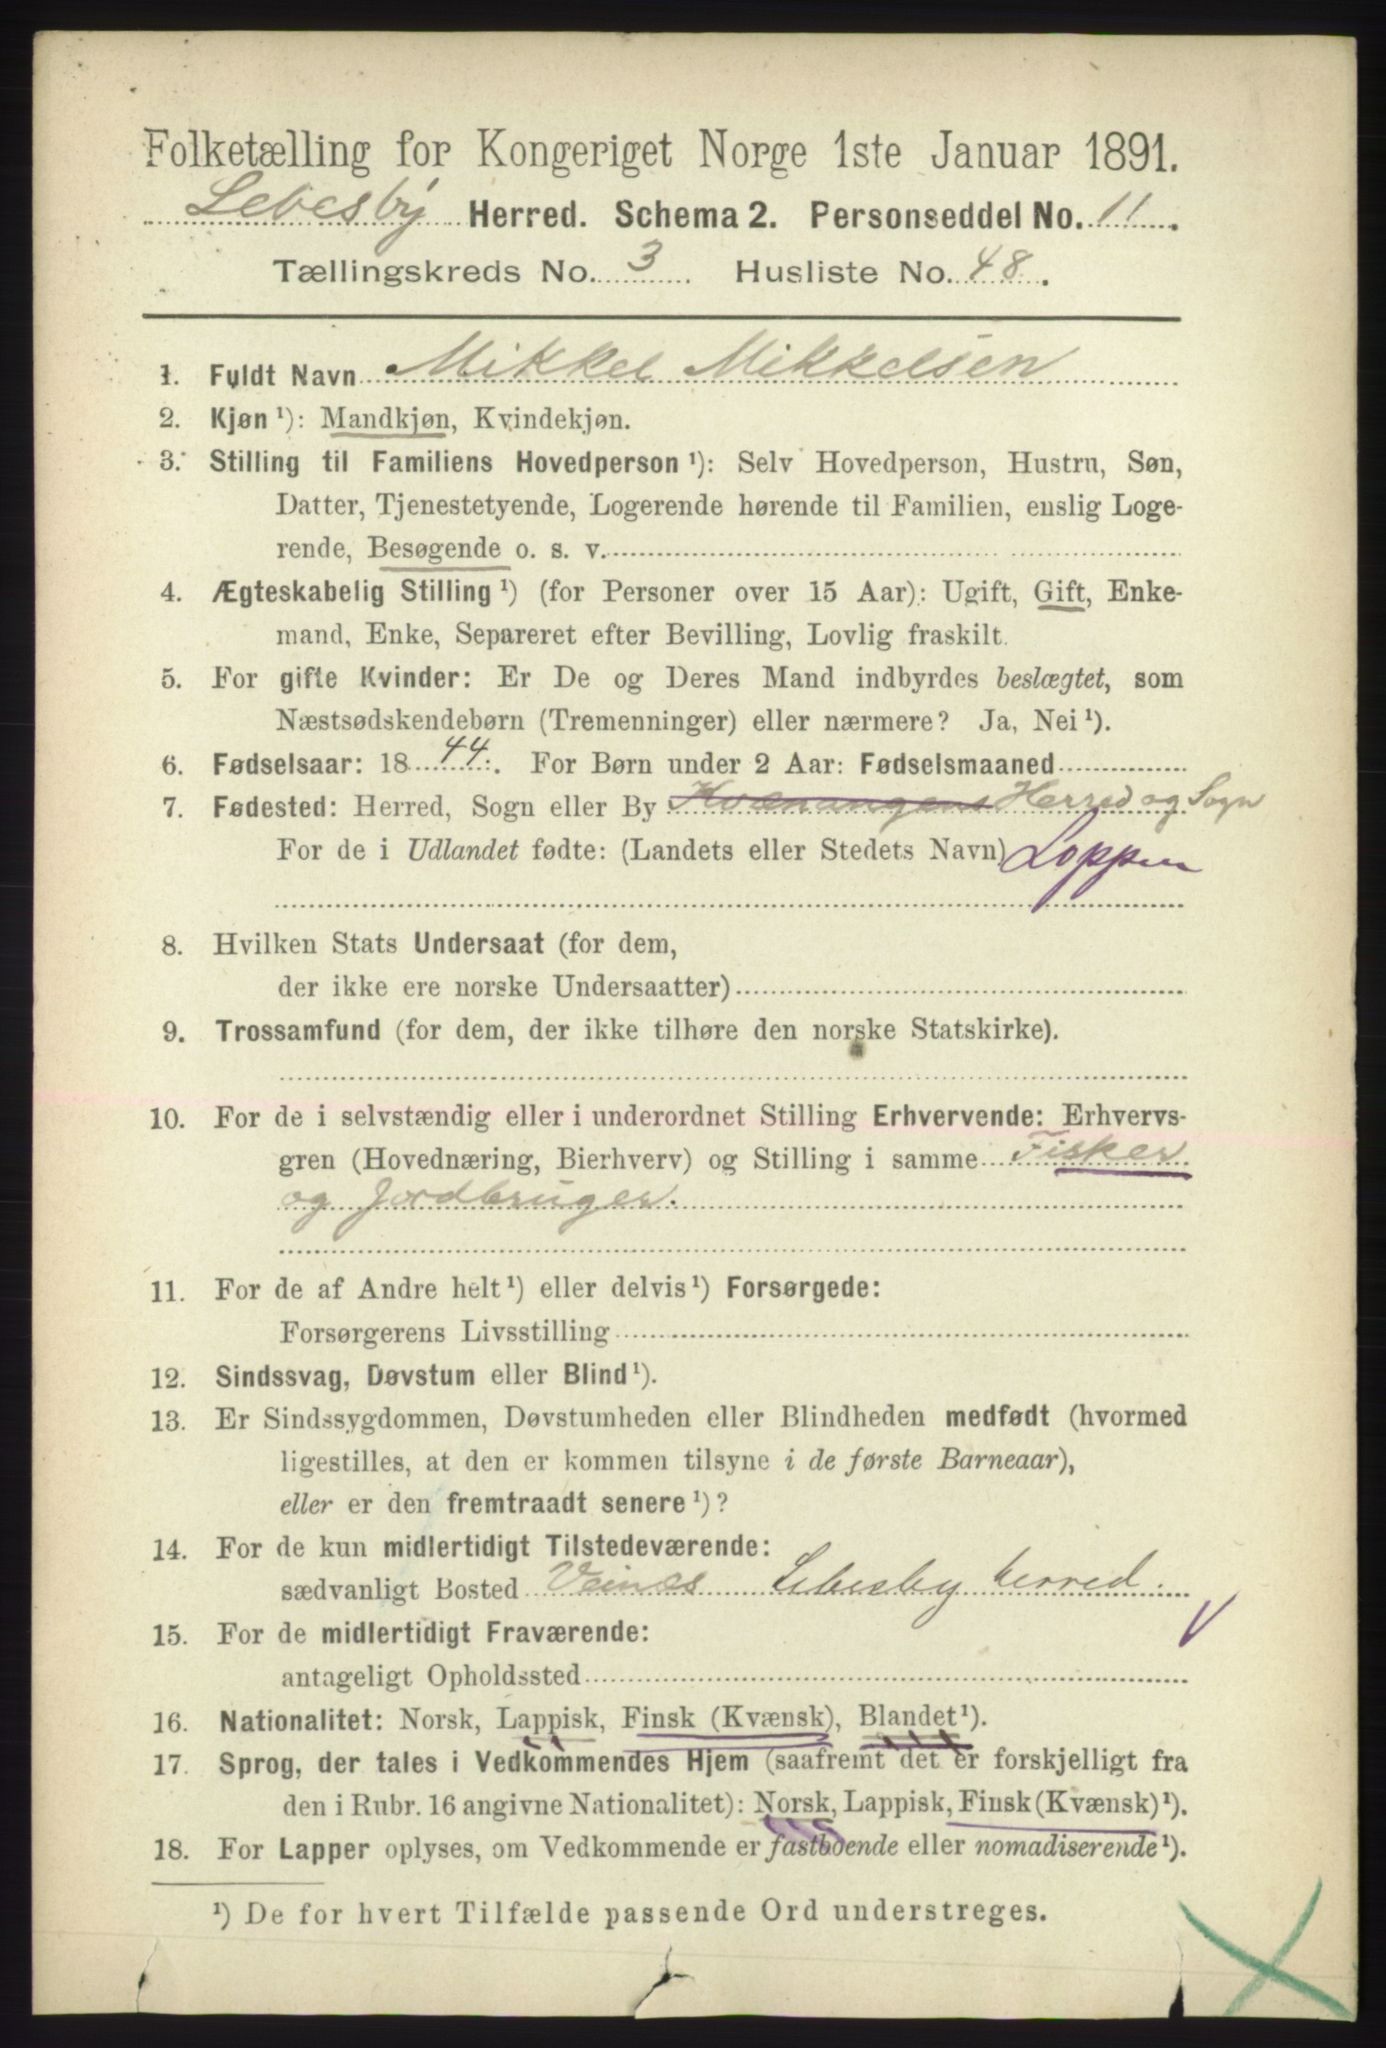 Folketælling for Kongeriget Norge 1ste Januar 1891.
Lebesby Herred. Schema 2. Personseddel No. 11.
Tællingskreds No. 3 Husliste No. 48.
1. Fuldt Navn Mikkel Mikkelsen
2. Kjøn¹): Mandkjøn, Kvindekjøn.
3. Stilling til Familiens Hovedperson¹): Selv Hovedperson, Hustru, Søn,
Datter, Tjenestetyende, Logerende hørende til Familien, enslig Loge-
rende, Besøgende o. s. v.
4. Ægteskabelig Stilling¹) (for Personer over 15 Aar): Ugift, Gift, Enke-
mand, Enke, Separeret efter Bevilling, Lovlig fraskilt.
5. For gifte Kvinder: Er De og Deres Mand indbyrdes beslægtet, som
Næstsødskendebørn (Tremenninger) eller nærmere? Ja, Nei¹).
6. Fødselsaar: 1844. For Børn under 2 Aar: Fødselsmaaned
7. Fødested: Herred, Sogn eller By Kvænangens Herred og Sogn
For de i Udlandet fødte: (Landets eller Stedets Navn) Loppen
8. Hvilken Stats Undersaat (for dem,
der ikke ere norske Undersaatter)
9. Trossamfund (for dem, der ikke tilhøre den norske Statskirke).
10. For de i selvstændig eller i underordnet Stilling Erhvervende: Erhvervs-
gren (Hovednæring, Bierhverv) og Stilling i samme Fisker
og Jordbruger.
11. For de af Andre helt¹) eller delvis¹) Forsørgede:
Forsørgerens Livsstilling
12. Sindssvag, Døvstum eller Blind¹).
13. Er Sindssygdommen, Døvstumheden eller Blindheden medfødt (hvormed
ligestilles, at den er kommen tilsyne i de første Barneaar),
eller er den fremtraadt senere¹)?
14. For de kun midlertidigt Tilstedeværende:
sædvanligt Bosted Veines Lebesby herred.
15. For de midlertidigt Fraværende:
antageligt Opholdssted
16. Nationalitet: Norsk, Lappisk, Finsk (Kvænsk), Blandet¹).
17. Sprog, der tales i Vedkommendes Hjem (saafremt det er forskjelligt fra
den i Rubr. 16 angivne Nationalitet): Norsk, Lappisk, Finsk (Kvænsk)¹).
18. For Lapper oplyses, om Vedkommende er fastboende eller nomadiserende¹).
¹) De for hvert Tilfælde passende Ord understreges.